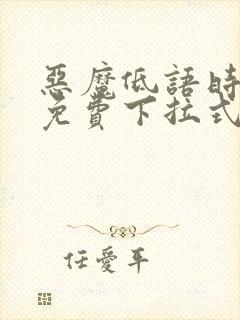 惡魔低語時
免費下拉式
任愛平